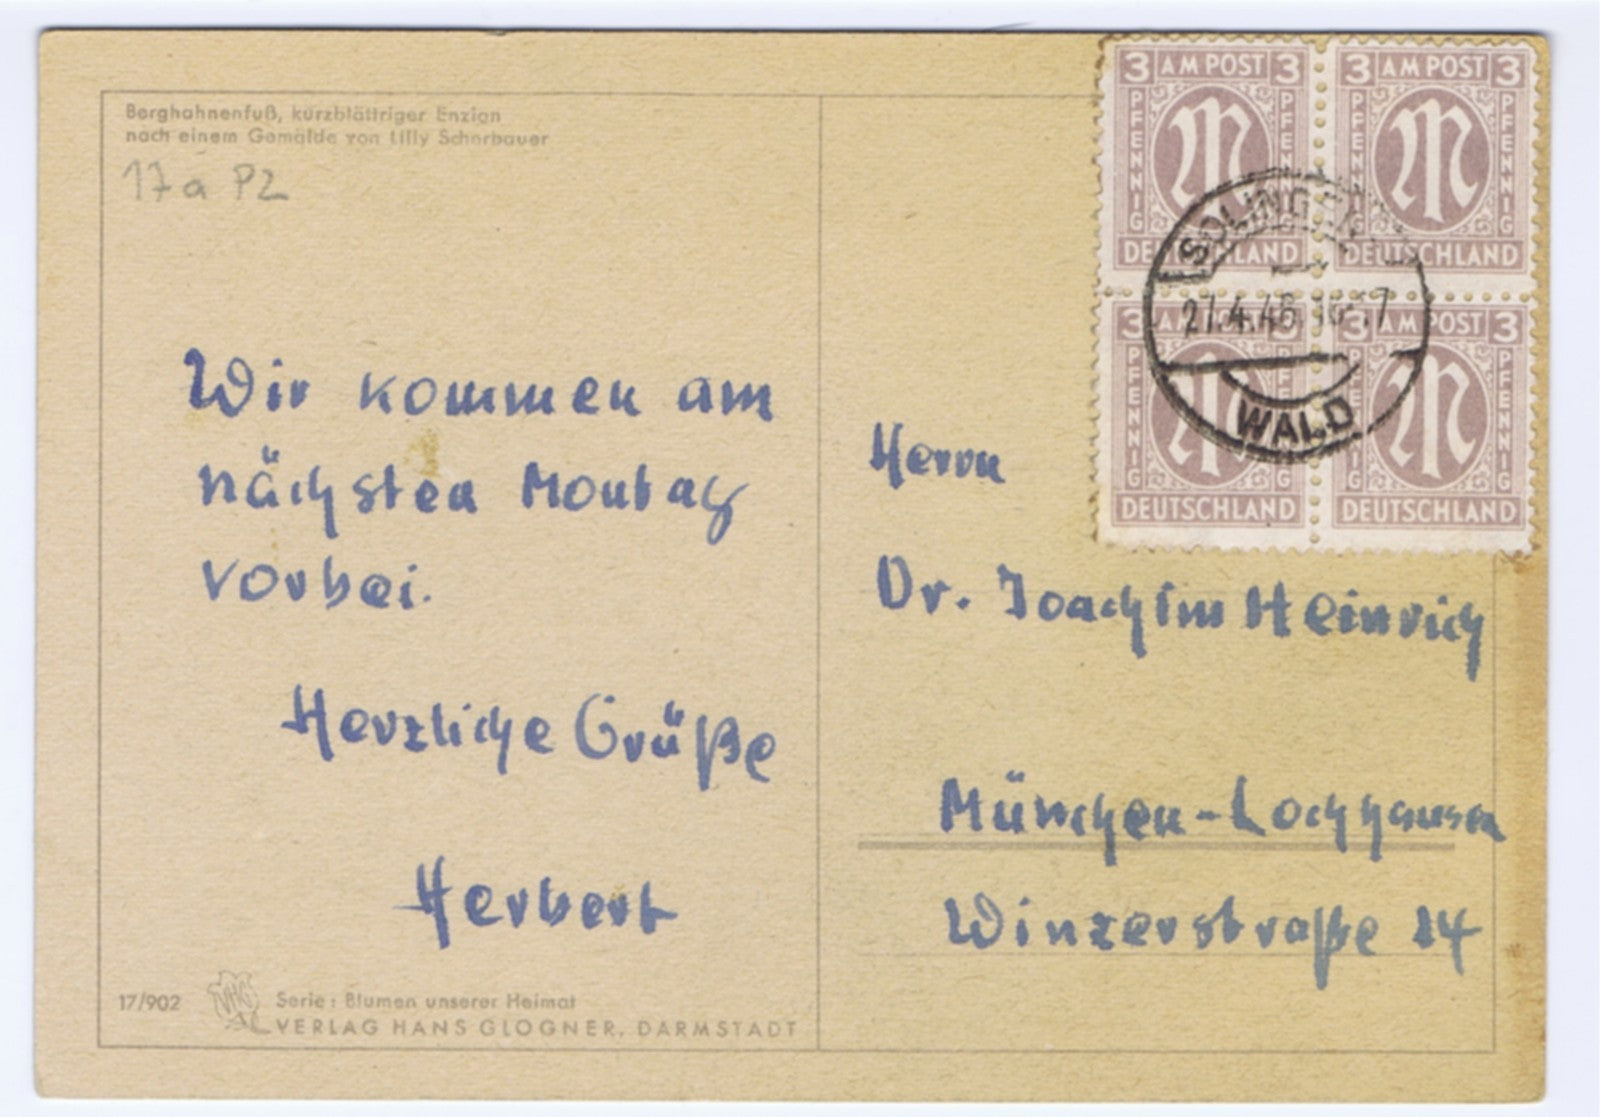 Berghahnenfuß, kurzblättriger Enzian
nach einem Gemälde von Lilly Scherbauer
17a P2
Wir kommen am
nächsten Montag
vorbei.
Herzliche Grüße
Herbert
17/902
Serie: Blumen unserer Heimat
VERLAG HANS GLOGNER, DARMSTADT
3 AM POST 3
PFENNIG
PFENNIG
DEUTSCHLAND
3 AM POST 3
PFENNIG
PFENNIG
DEUTSCHLAND
3 AM POST 3
PFENNIG
PFENNIG
DEUTSCHLAND
3 AM POST 3
PFENNIG
PFENNIG
DEUTSCHLAND
SOLINGEN
27.4.46. 16-17
WALD
Herrn
Dr. Joachim Heinrich
München-Lochhausen
Winzerstraße 14